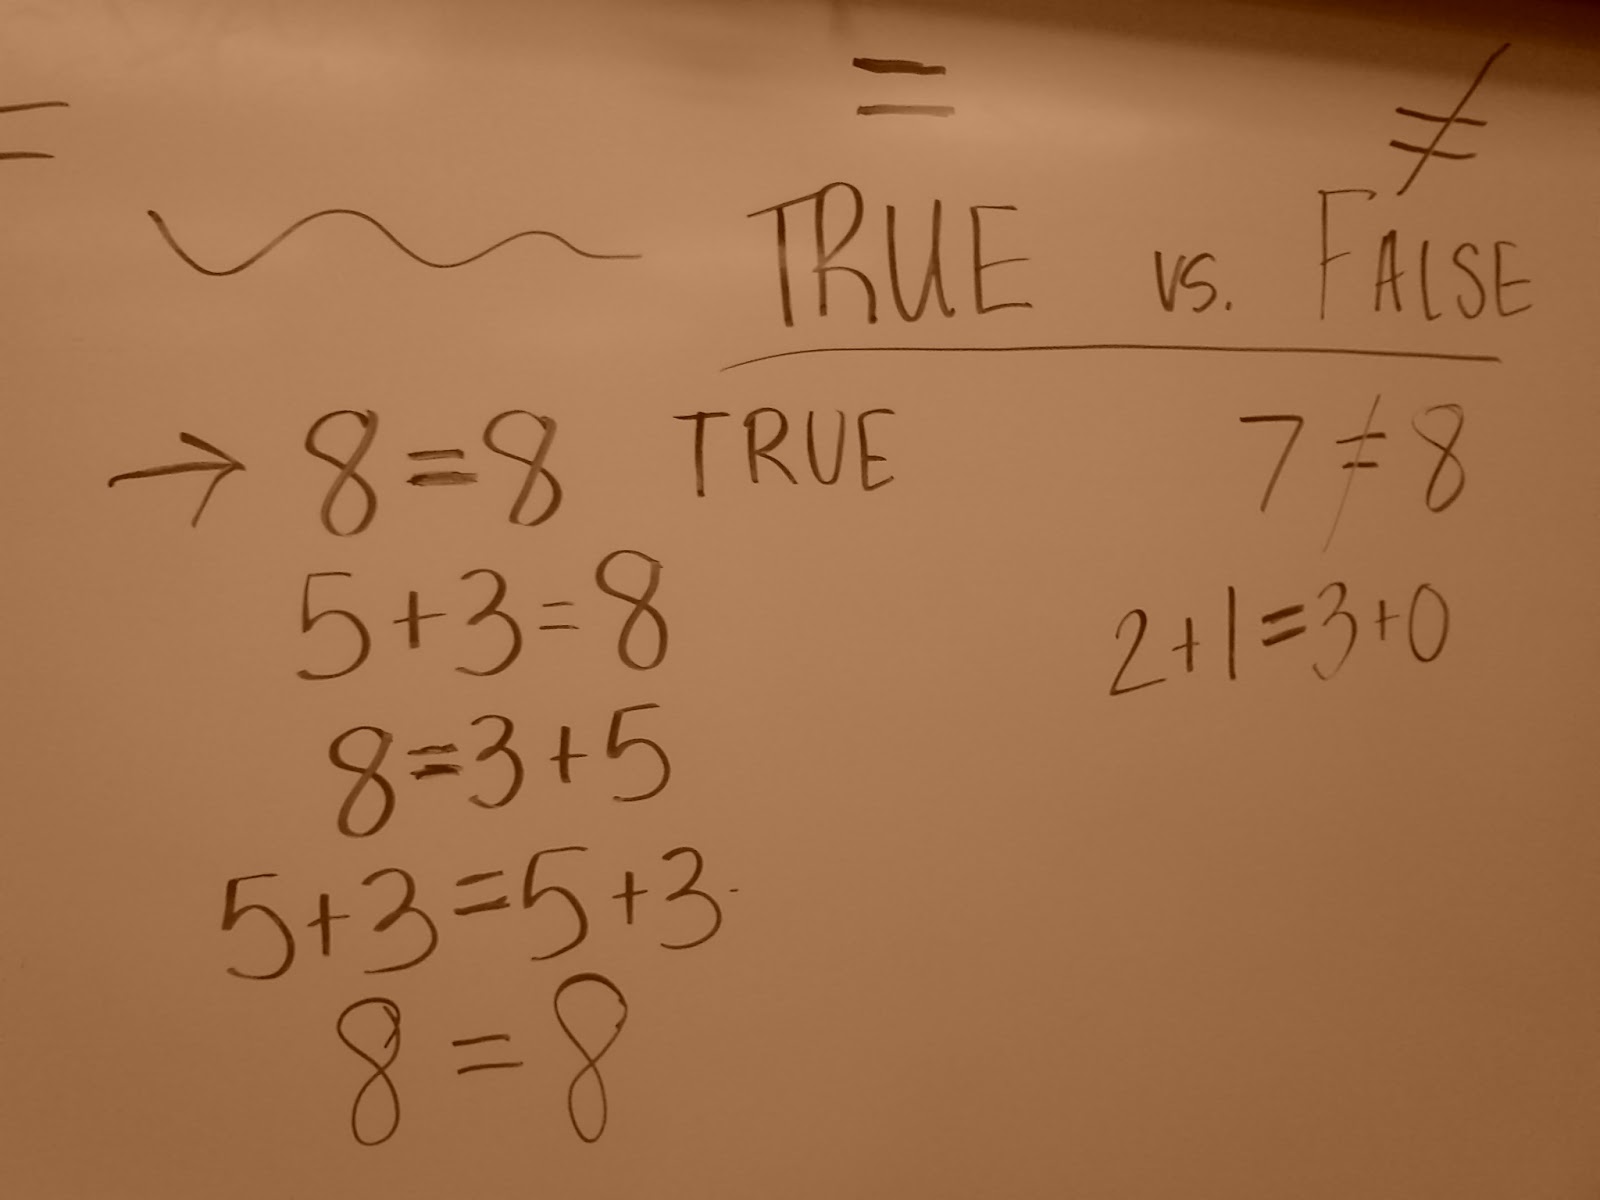 = = ≠
TRUE vs. FALSE
→ 8=8 TRUE
7≠8
5+3=8
2+1=3+0
8=3+5
5+3=5+3
8=8